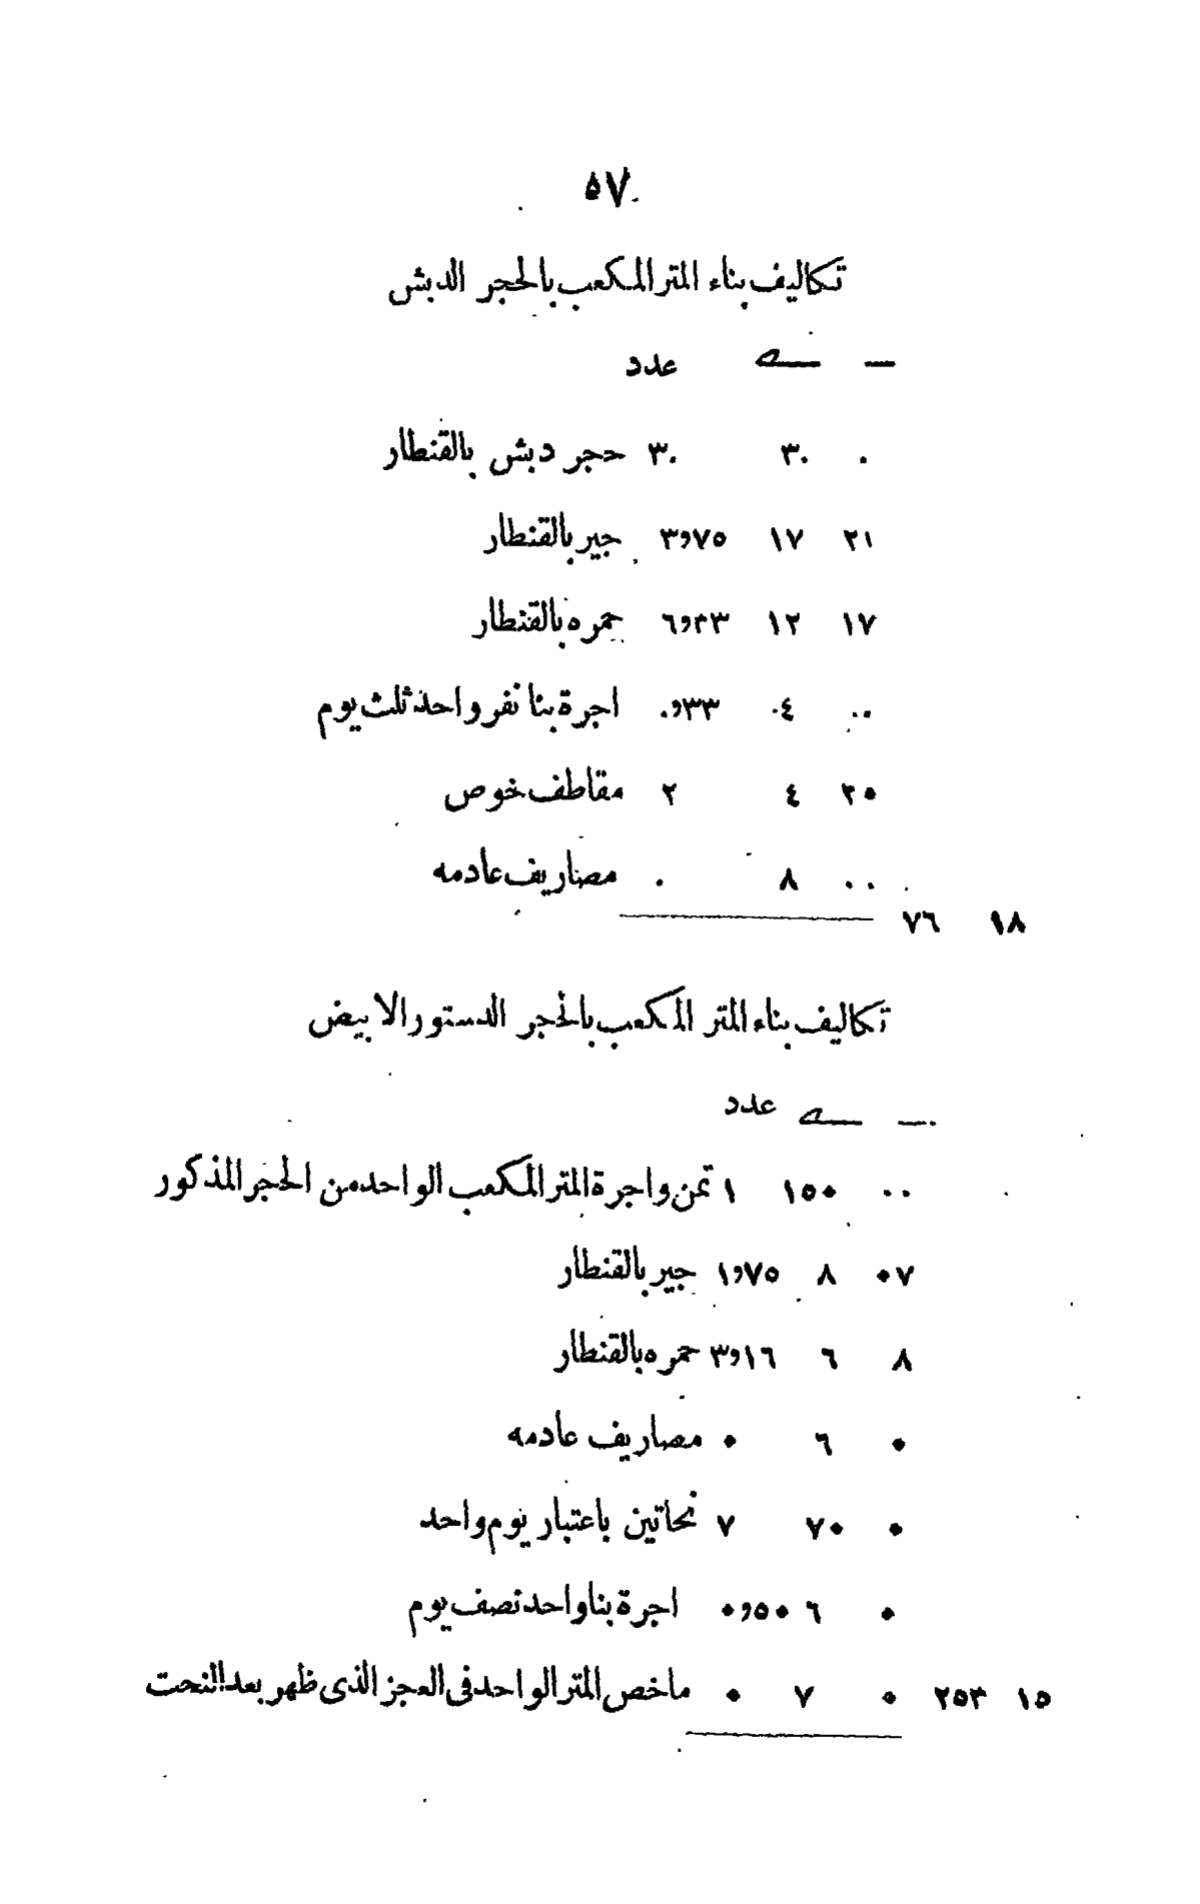 ٥٧
تكاليف بناء المتر المكعب بالحجر الدبش
عدد
٠ ٣٠ ٣٠ حجر دبش بالقنطار
٢١ ١٧ ٣٫٧٥ جير بالقنطار
١٧ ١٢ ٦٫٣٣ حمره بالقنطار
٠٠ ٠٤ ٠٫٣٣ اجرة بنا نفر واحد ثلث يوم
٢٠ ٤ ٢ مقاطف خوص
٠٠ ٨ ٠ مصاريف عادمه
١٨ ٧٦
تكاليف بناء المتر المكعب بالحجر الدستور الابيض
عدد
٠٠ ١٥٠ ١ ثمن واجرة المتر المكعب الواحد من الحجر المذكور
٠٧ ٨ ١٫٧٥ جير بالقنطار
٨ ٦ ٣٫١٦ حمره بالقنطار
٠ ٦ ٠ مصاريف عادمه
٠ ٧٠ ٧ نحاتين باعتبار يوم واحد
٠ ٦ ٠٫٥٠ اجرة بنا واحد نصف يوم
١٥ ٢٥٣ ٠ ٧ ٠ ماخص المتر الواحد فى العجز الذى ظهر بعد النحت